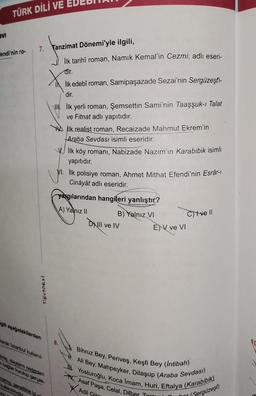 TÜRK DİLİ VE
endi'nin ro-
7. Tanzimat Dönemi'yle ilgili,
I. İlk tarihî roman, Namık Kemal'in Cezmi; adlı eseri-
dir.
İlk edebî roman, Samipaşazade Sezai'nin Sergüzeşti-
dir.
III. İlk yerli roman, Şemsettin Sami'nin Taaşşuk-ı Talat
ve Fitnat adlı yapıtıdır.
İlk realist roman, Recaizade Mahmut Ekrem'in
Araba Sevdası isimli eseridir.
V. İlk köy romanı, Nabizade Nazım'ın Karabibik isimli
yapıtıdır.
VI. İlk polisiye roman, Ahmet Mithat Efendi'nin Esrâr-ı
Cinâyât adlı eseridir.
yargılarından hangileri yanlıştır?
A) Yalnız II
B) Yalnız VI
C) I ve II
D) III ve IV
E) V ve VI
aşağıdakilerden
İstanbul
8.
Bihruz Bey, Periveş, Keşfi Bey (İntibah)
Ali Bey, Mahpeyker, Dilaşup (Araba Sevdası)
Yosturoğlu, Koca İmam, Huri, Eftalya (Karabibik)
Asaf Paşa, Celal, Dilber,